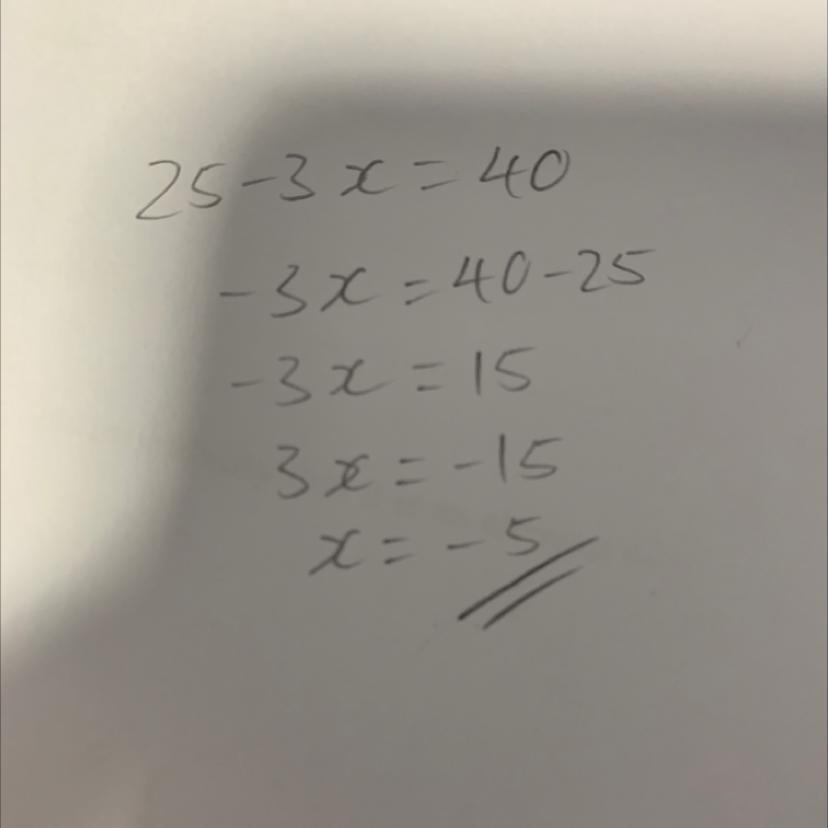 25-3x=40
-3x=40-25
-3x=15
3x=-15
x=-5